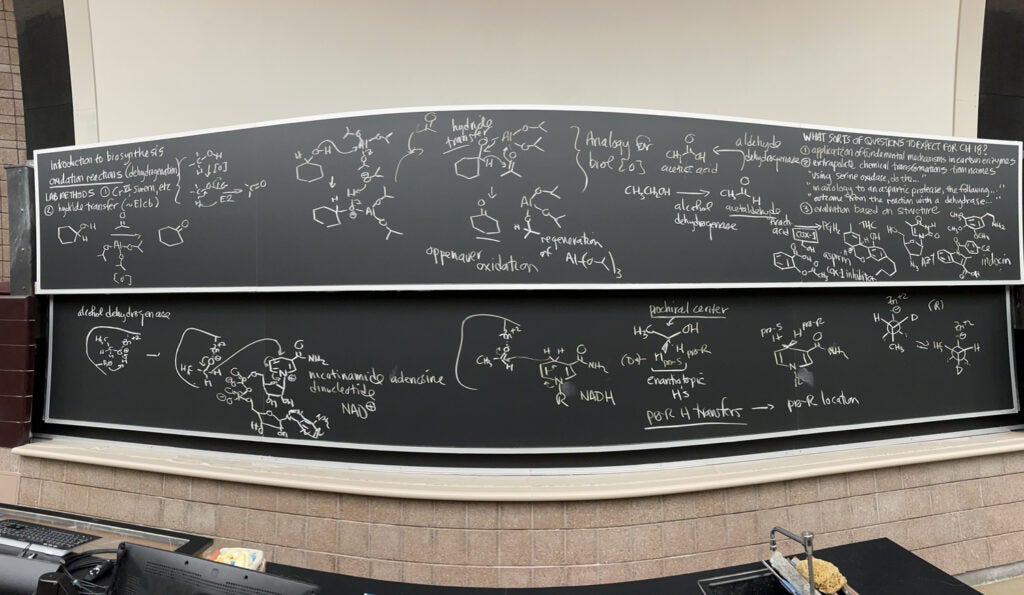 introduction to biosynthesis
oxidation reactions (dehydrogenation)
LAB METHODS ① Cr VI, Swern, etc
② hydride transfer (~E1cb)
[O]
E2
[O]
hydride transfer
oppenauer oxidation
regeneration of Al(O-)3
Analogy for biol [O]
acetic acid
aldehyde dehydrogenase
CH3CH2OH
alcohol dehydrogenase
acetaldehyde
WHAT SORTS OF QUESTIONS TO EXPECT FOR CH 18?
① application of fundamental mechanisms in certain enzymes
② extrapolate chemical transformations from names
"using serine oxidase, do the..."
"in analogy to an aspartic protease, the following..."
outcome from the reaction with a dehydratase..."
③ evaluation based on structure
acid
COX-1
PGH2
THC
aspirin
COX-1 inhibitor
AZT
indocin
alcohol dehydrogenase
Zn+2
nicotinamide adenosine dinucleotide
NAD⊕
NH2
Zn+2
NH2
NADH
R
prochiral center
H3C
OH
pro-S
pro-R
enantiotopic H's
pro-R H transfers → pro-R location
pro-S
pro-R
NH2
R
Zn+2
(R)
D
CH3
Zn+2
H3C
H
D